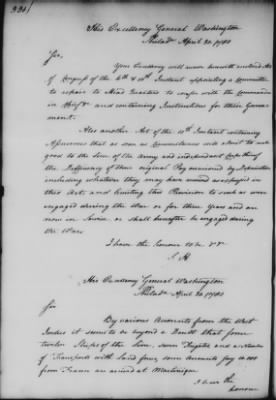 His Excellency General Washington
Philad.a April 20, 1780
Sir,
Your Excellency will receive herewith enclosed Acts
of Congress of the 6th & 12th Instant appointing a Committee
to repair to Head Quarters to confer with the Commander
in Chief and containing Instructions for their Govern
ment.
Also another Act of the 10th Instant containing
Assurances that as soon as Circumstances will admit to make
good to the Line of the Army and independent Corps thereof
the Deficiency of their original Pay occasioned by Depreciation
including whatever they may have received as expressed in
this Act: and limiting this Provision to such as were
engaged during the War or for three Years and are
now in Service or shall hereafter be engaged during
the War
I have the honour to be &c &c
S. H
His Excellency General Washington
Philad.a April 20, 1780
Sir
By various Accounts from the West
Indies it seems to be beyond a Doubt that some
twelve Ships of the Line, some Frigates and a Number
of Transports with Land force, some Accounts say
from France are arrived at Martinique
I have the
honour